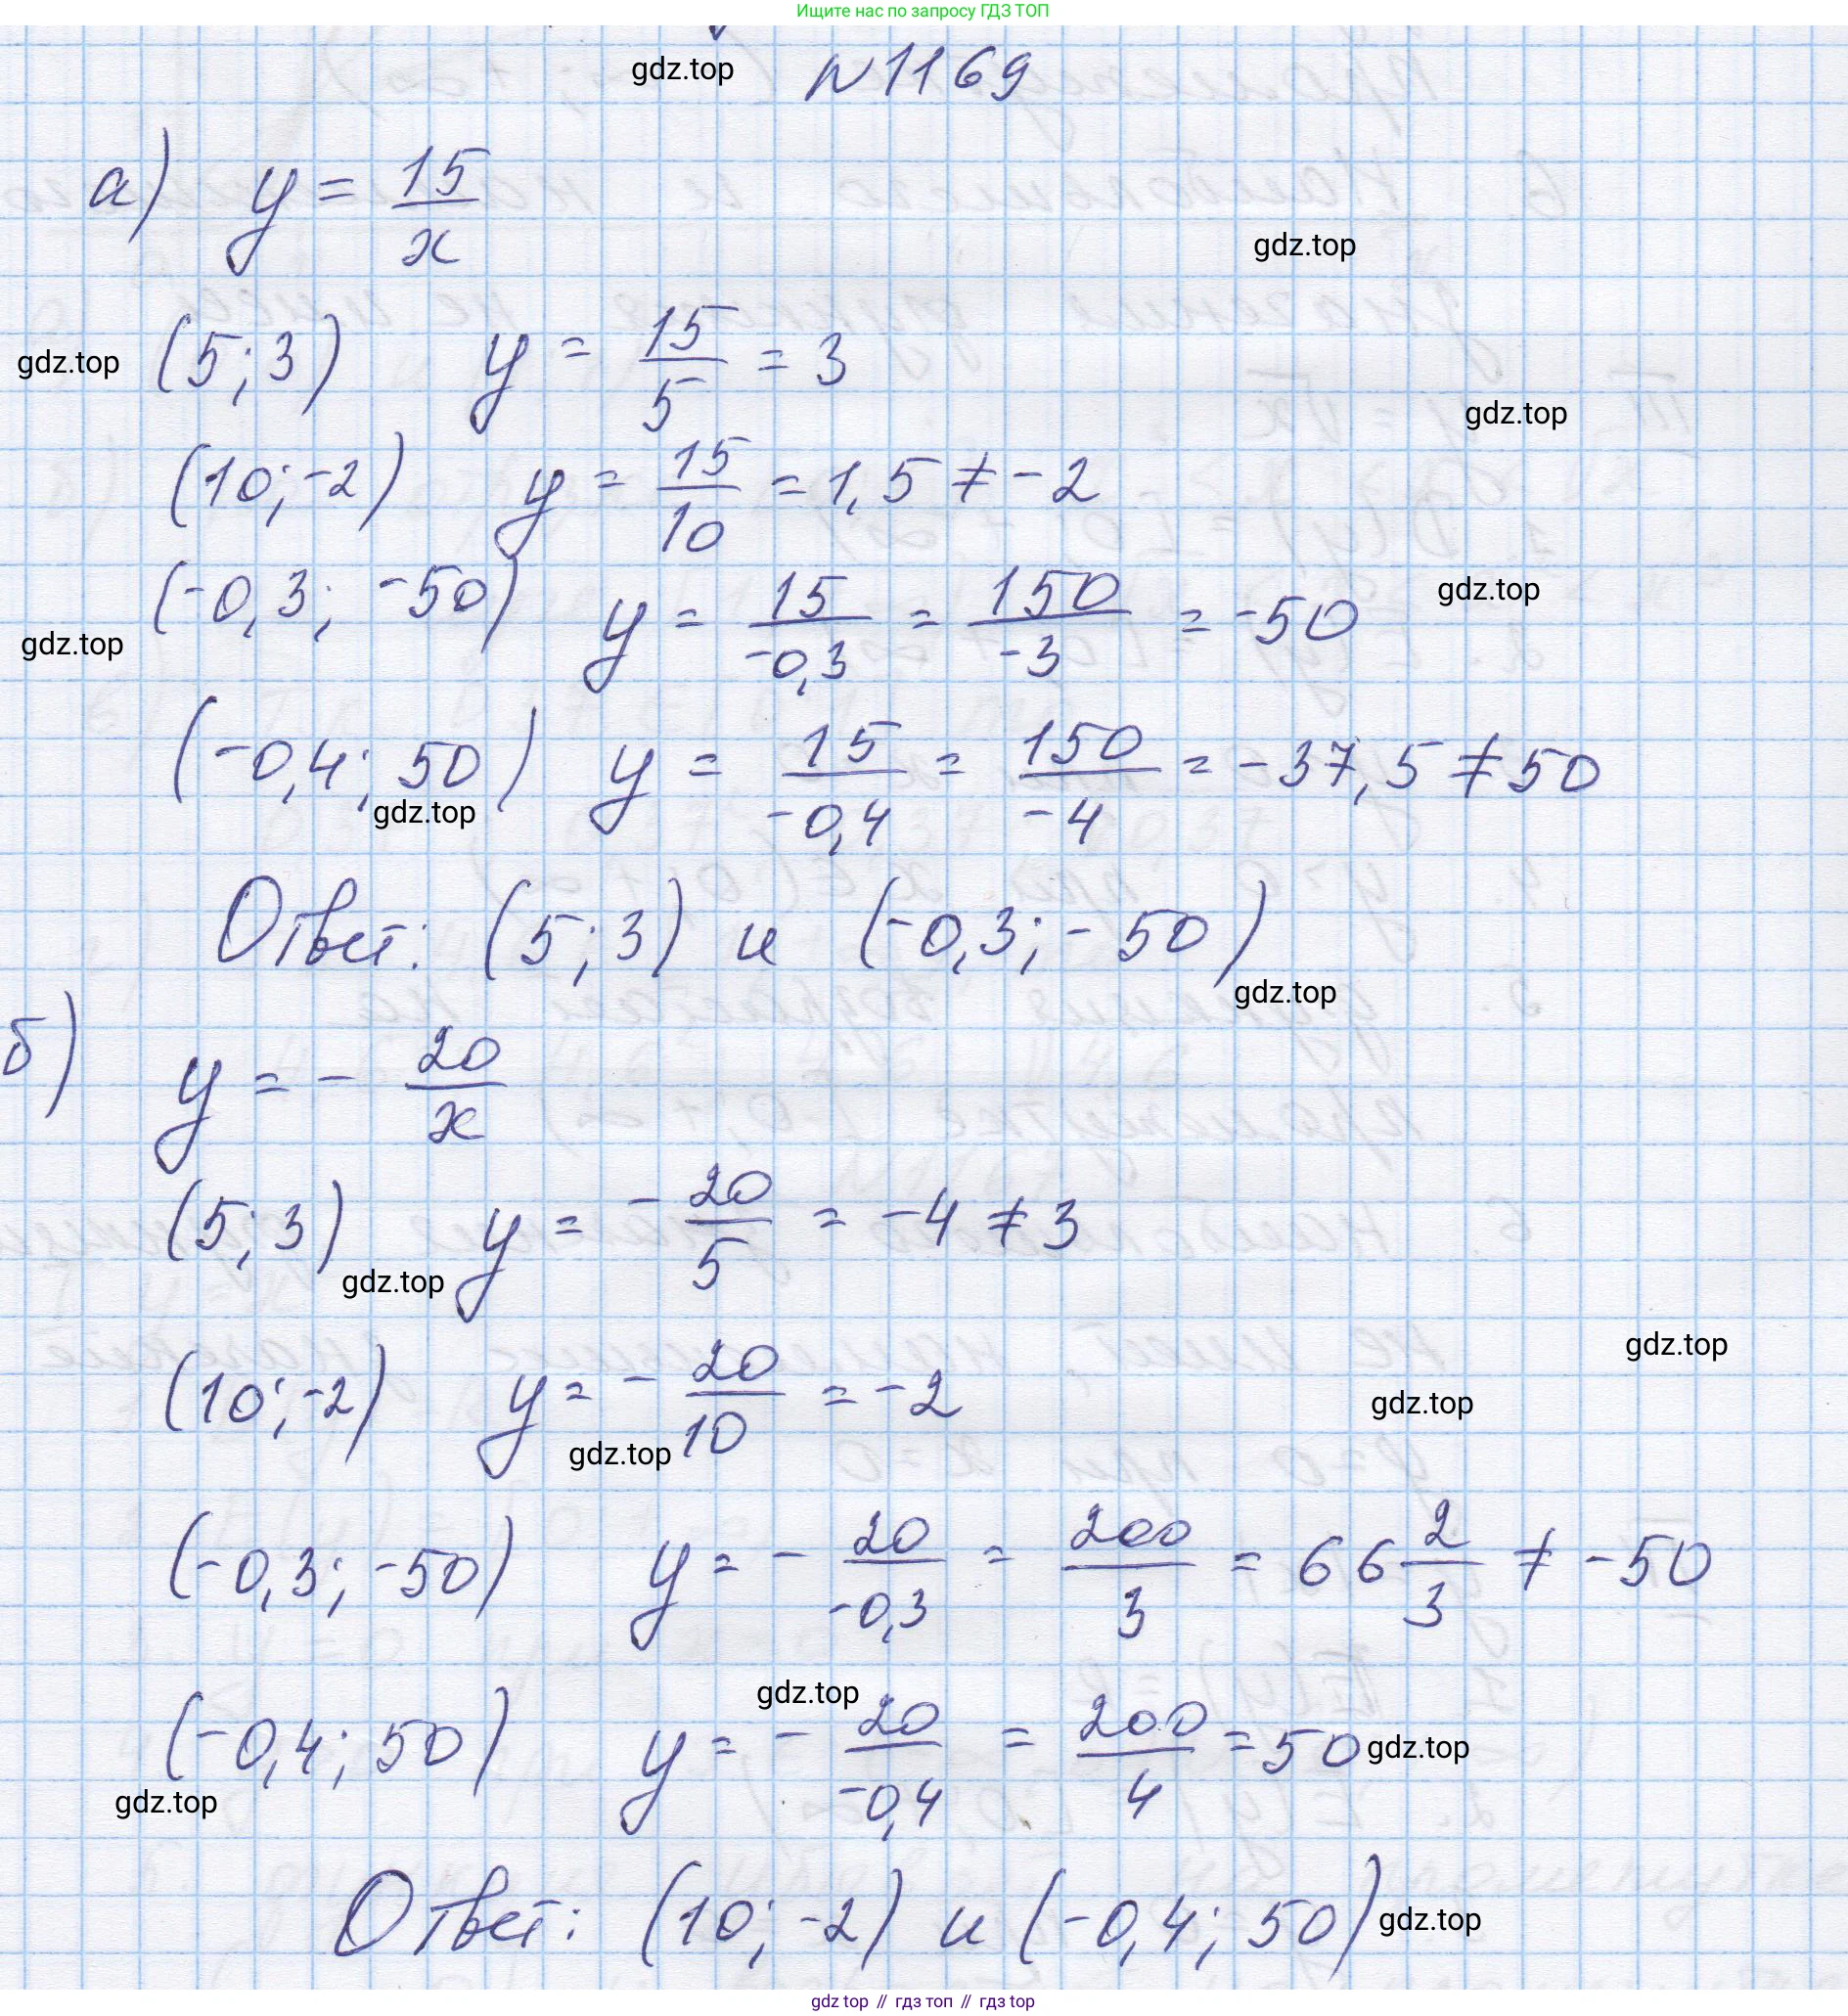 Ищите нас по запросу ГДЗ ТОП
gdz.top N 1169
а) y = 15/x
gdz.top
gdz.top (5; 3) y = 15/5 = 3
gdz.top
(10; -2) y = 15/10 = 1,5 ≠ -2
(-0,3; -50) y = 15/-0,3 = 150/-3 = -50 gdz.top
gdz.top
(-0,4; 50) y = 15/-0,4 = 150/-4 = -37,5 ≠ 50
gdz.top
Ответ: (5; 3) и (-0,3; -50)
gdz.top
б) y = - 20/x
(5; 3) y = - 20/5 = -4 ≠ 3
gdz.top
gdz.top
(10; -2) y = - 20/10 = -2 gdz.top
gdz.top
(-0,3; -50) y = - 20/-0,3 = 200/3 = 66 2/3 ≠ -50
gdz.top
(-0,4; 50) y = - 20/-0,4 = 200/4 = 50 gdz.top
gdz.top
Ответ: (10; -2) и (-0,4; 50) gdz.top
gdz top // гдз топ // гдз top